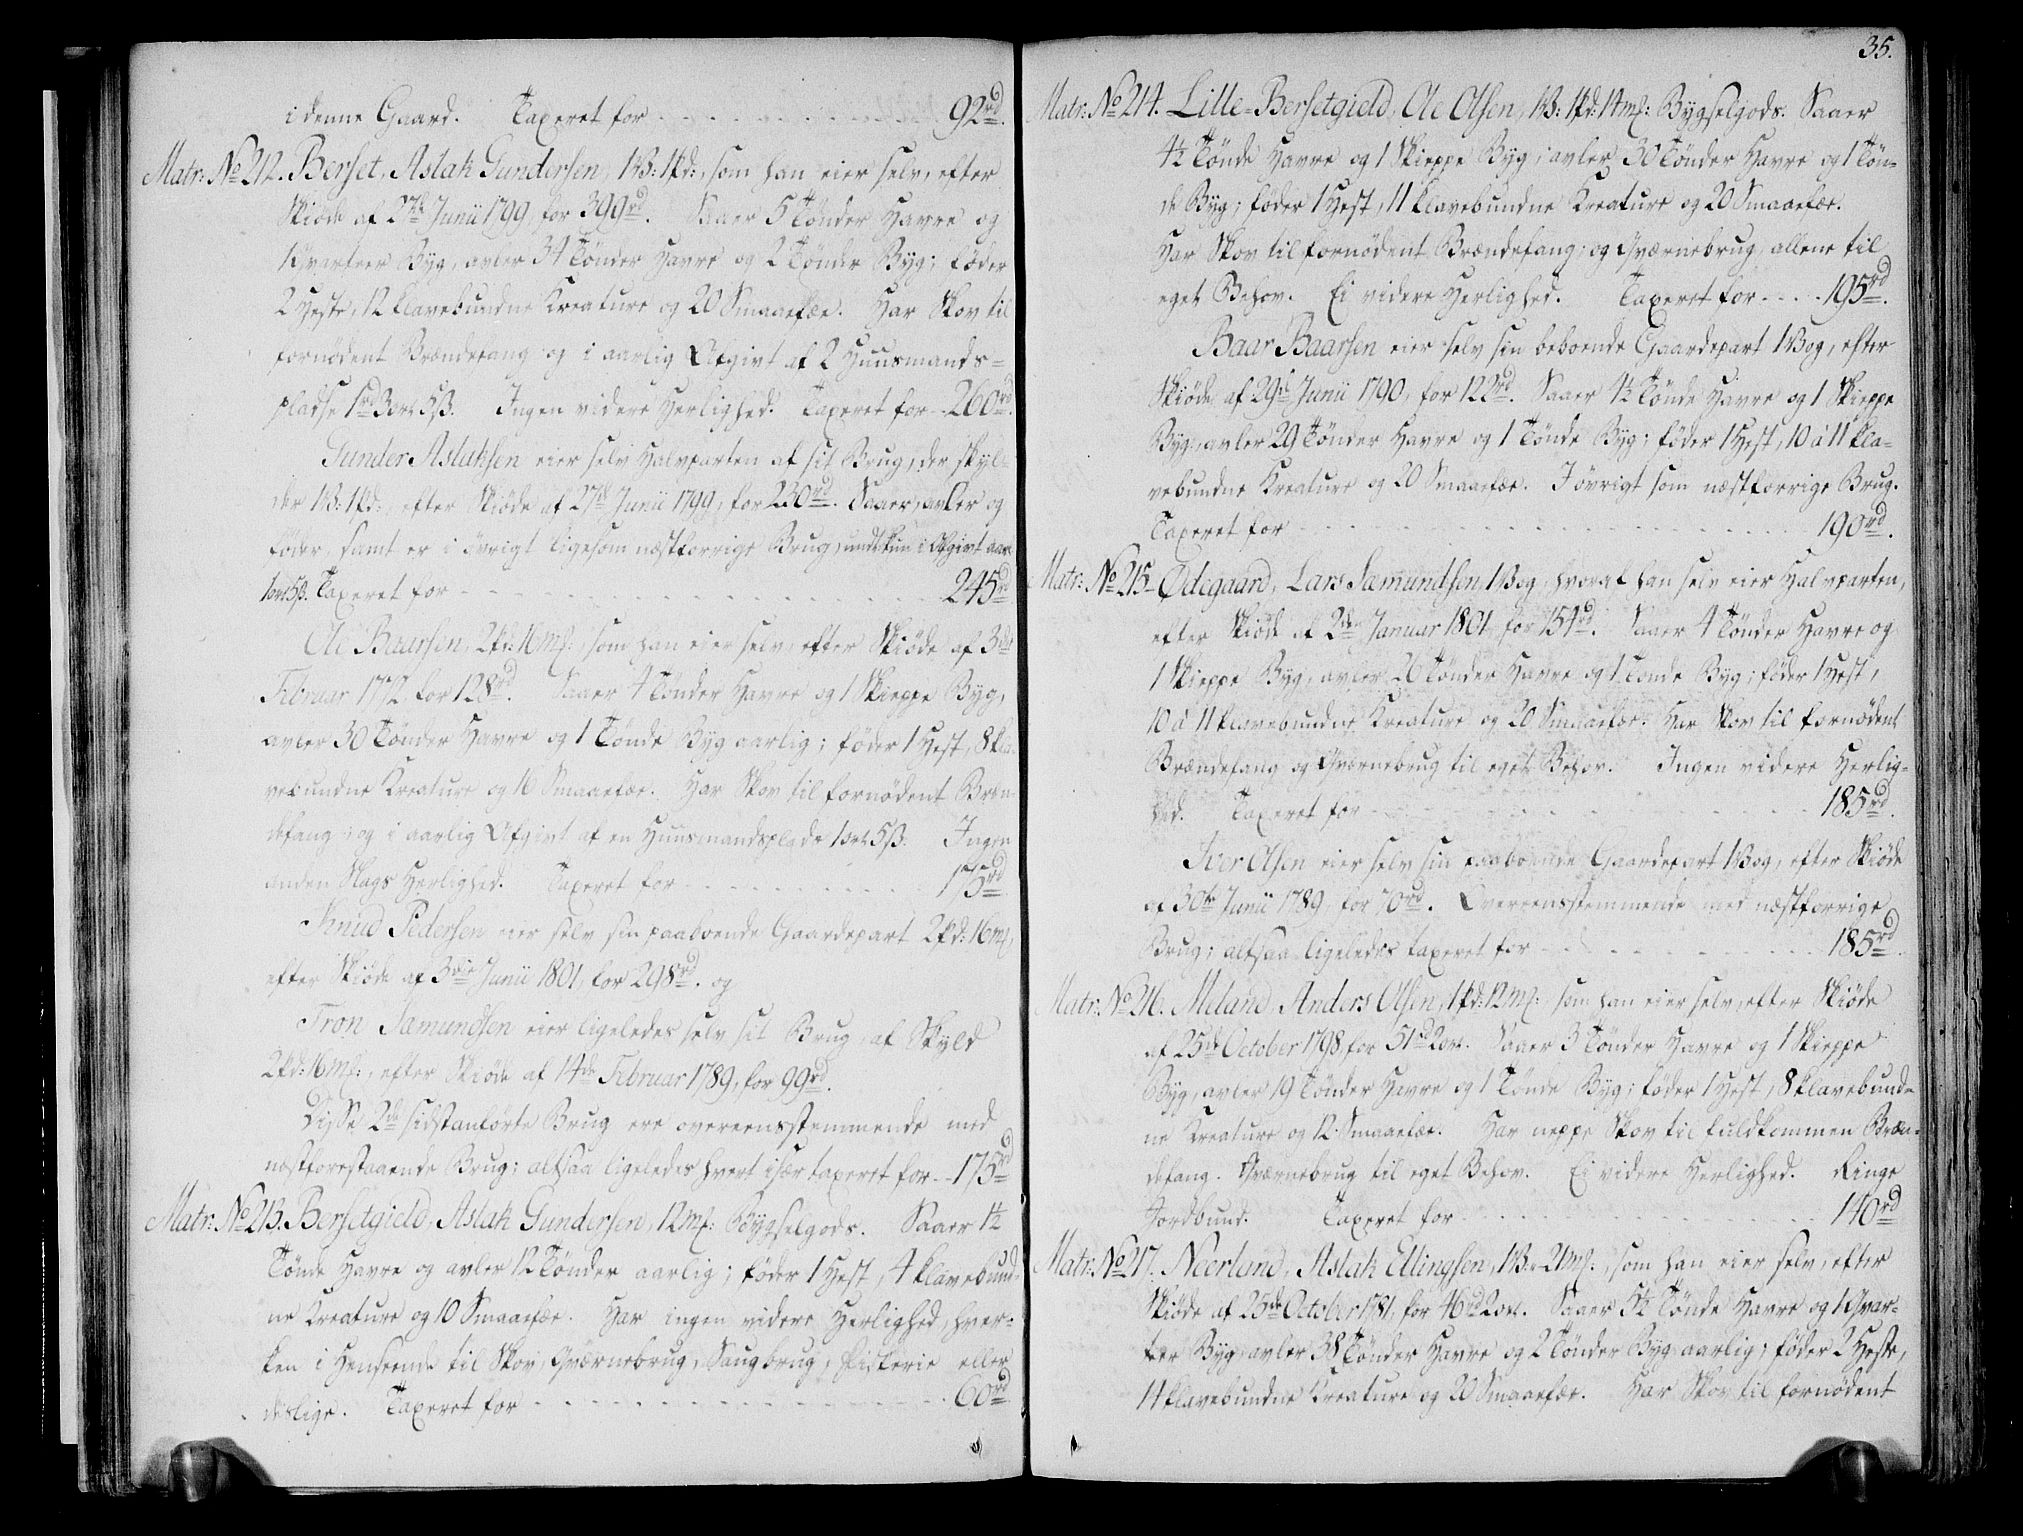 i denne Gaard. Taxeret for - - - 92 rd.
Matr: No 212. Berset, Aslak Gundersen, 1 B: 1 pd:, som han eier selv, efter
Skiöde af 27de Junii 1799, for 399 rd. Saaer 5 Tönder Havre og
1 Qvarteer Byg, avler 34 Tönder Havre og 2 Tönder Byg; föder
2 Heste, 12 klavebundne Kreature og 20 Smaafæe. Har Skov til
fornödent Brændefang og i aarlig Afgivt af 2 Huusmands-
pladse 1 rd 3 ort 5 ß. Ingen videre Herlighed. Taxeret for - - 260 rd.
Gunder Aslaksen eier selv Halvparten af sit Brug, der skyl-
der 1 B: 1 pd:, efter Skiöde af 27de Junii 1799, for 230 rd. Saaer, avler og
föder, samt er i övrigt ligesom næstforrige Brug, undt: kun i Afgivt aarl:
1 ort 5 ß. Taxeret for - - - 245 rd
Ole Baarsen, 2 pd: 16 mk:, som han eier selv, efter Skiöde af 3die
Februar 1772, for 128 rd. Saaer 4 Tönder Havre og 1 Skieppe Byg,
avler 30 Tönder Havre og 1 Tönde Byg aarlig; föder 1 Hest, 8 kla-
vebundne Kreature og 16 Smaafæe. Har Skov til fornödent Bræn-
defang, og i aarlig Afgivt af en Huusmandsplads 1 ort 5 ß. Ingen
anden Slags Herlighed. Taxeret for - - - 175 rd
Knud Pedersen eier selv sin paaboende Gaardepart 2 pd: 16 mk,
efter Skiöde af 3die Junii 1801, for 298 rd. og
Tron Sæmundsen eier ligeledes selv sit Brug, af Skyld
2 pd: 16 mk:, efter Skiöde af 14de Februar 1789, for 99 rd.
Disse 2de sidstanförte Brug ere overeensstemmende med
næstforestaaende Brug; altsaa ligeledes hvert især taxeret for - - 175 rd
Matr: No 213. Bersetgield, Aslak Gundersen, 12 mk: Bygselgods. Saaer 1½
Tönde Havre og avler 12 Tönder aarlig; föder 1 Hest, 4 klavebund-
ne Kreature og 10 Smaafæe. Har ingen videre Herlighed, hver-
ken i Henseende til Skov, Qværnebrug, Saugbrug, Fiskerie eller
deslige. Taxeret for - - - 60 rd
35.
Matr: No 214. Lille-Bersetgield, Ole Olsen, 1 B: 1 pd: 14 mk: Bygselgods. Saaer
4½ Tönde Havre og 1 Skieppe Byg; avler 30 Tönder Havre og 1 Tön-
de Byg; föder 1 Hest, 11 klavebundne Kreature og 20 Smaafæe.
Har Skov til fornödent Brændefang; og Qværnebrug, allene til
eget Behov. Ei videre Herlighed. Taxeret for - - - 195 rd.
Baar Baarsen eier selv sin beboende Gaardepart 1 Bog, efter
Skiöde af 29de Junii 1790, for 122 rd. Saaer 4½ Tönde Havre og 1 Skieppe
Byg, avler 29 Tönder Havre og 1 Tönde Byg; föder 1 Hest, 10 à 11 kla-
vebundne Kreature og 20 Smaafæe. I övrigt som næstforrige Brug.
Taxeret for - - - 190 rd.
Matr: No 215. Ødegaard, Lars Sæmundsen, 1 Bog, hvoraf han selv eier Halvparten,
efter Skiöde af 2den Januar 1801, for 154 rd. Saaer 4 Tönder Havre og
1 Skieppe Byg, avler 26 Tönder Havre og 1 Tönde Byg; föder 1 Hest,
10 à 11 klavebundne Kreature og 20 Smaafæe. Har Skov til fornödent
Brændefang og Qværnebrug til eget Behov. Ingen videre Herlig-
hed. Taxeret for - - - 185 rd.
Iver Olsen eier selv sin paaboende Gaardepart 1 Bog, efter Skiöde
af 30te Junii 1789, for 70 rd. Overeensstemmende med næstforrige
Brug; altsaa ligeledes taxeret for - - - 185 rd.
Matr: No 216. Meland, Anders Olsen, 1 pd: 12 mk: som han eier selv, efter Skiöde
af 25de October 1798, for 51 rd 2 ort. Saaer 3 Tönder Havre og 1 Skieppe
Byg, avler 19 Tönder Havre og 1 Tönde Byg; föder 1 Hest, 8 klavebund-
ne Kreature og 12 Smaafæe. Har neppe Skov til fuldkommen Bræn-
defang. Qværnebrug til eget Behov. Ei videre Herlighed. Ringe
Jordbund. Taxeret for - - - 140 rd
Matr: No 217. Neerland, Aslak Ellingsen, 1 B: 21 mk:, som han eier selv, efter
Skiöde af 25de October 1781, for 46 rd 2 ort. Saaer 5½ Tönde Havre og 1 Qvar-
teer Byg, avler 38 Tönder Havre og 2 Tönder Byg aarlig; föder 2 Heste,
14 klavebundne Kreature og 20 Smaafæe. Har Skov til fornödent